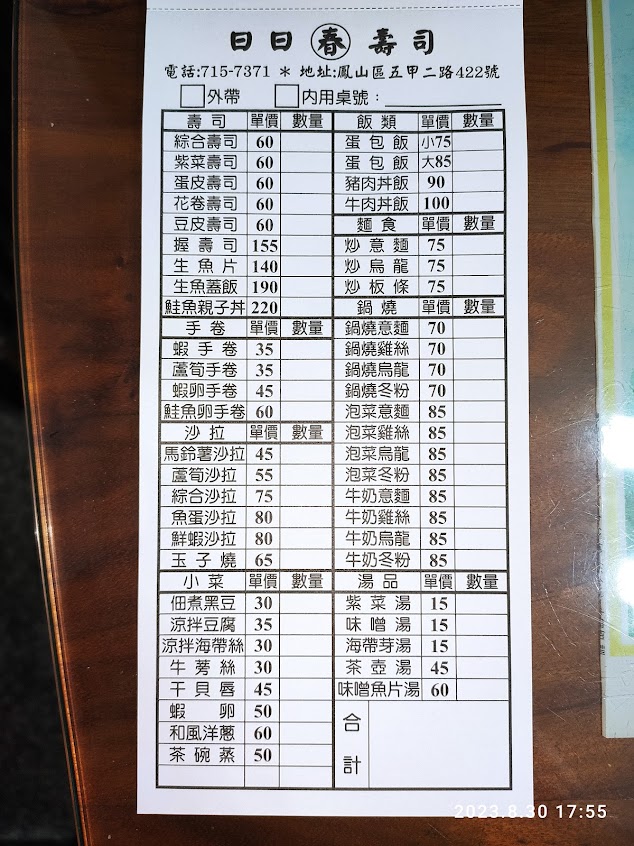 日日春壽司
電話:715-7371 * 地址:鳳山區五甲二路422號
外帶 內用桌號:
壽司 單價 數量
綜合壽司 60
紫菜壽司 60
蛋皮壽司 60
花卷壽司 60
豆皮壽司 60
握壽司 155
生魚片 140
生魚蓋飯 190
鮭魚親子丼 220
手卷 單價 數量
蝦手卷 35
蘆筍手卷 35
蝦卵手卷 45
鮭魚卵手卷 60
沙拉 單價 數量
馬鈴薯沙拉 45
蘆筍沙拉 55
綜合沙拉 75
魚蛋沙拉 80
鮮蝦沙拉 80
玉子燒 65
小菜 單價 數量
佃煮黑豆 30
涼拌豆腐 35
涼拌海帶絲 30
牛蒡絲 30
干貝唇 45
蝦卵 50
和風洋蔥 60
茶碗蒸 50
飯類 單價 數量
蛋包飯 小75
蛋包飯 大85
豬肉丼飯 90
牛肉丼飯 100
麵食 單價 數量
炒意麵 75
炒烏龍 75
炒板條 75
鍋燒 單價 數量
鍋燒意麵 70
鍋燒雞絲 70
鍋燒烏龍 70
鍋燒冬粉 70
泡菜意麵 85
泡菜雞絲 85
泡菜烏龍 85
泡菜冬粉 85
牛奶意麵 85
牛奶雞絲 85
牛奶烏龍 85
牛奶冬粉 85
湯品 單價 數量
紫菜湯 15
味噌湯 15
海帶芽湯 15
茶壺湯 45
味噌魚片湯 60
合計
2023.8.30 17:55